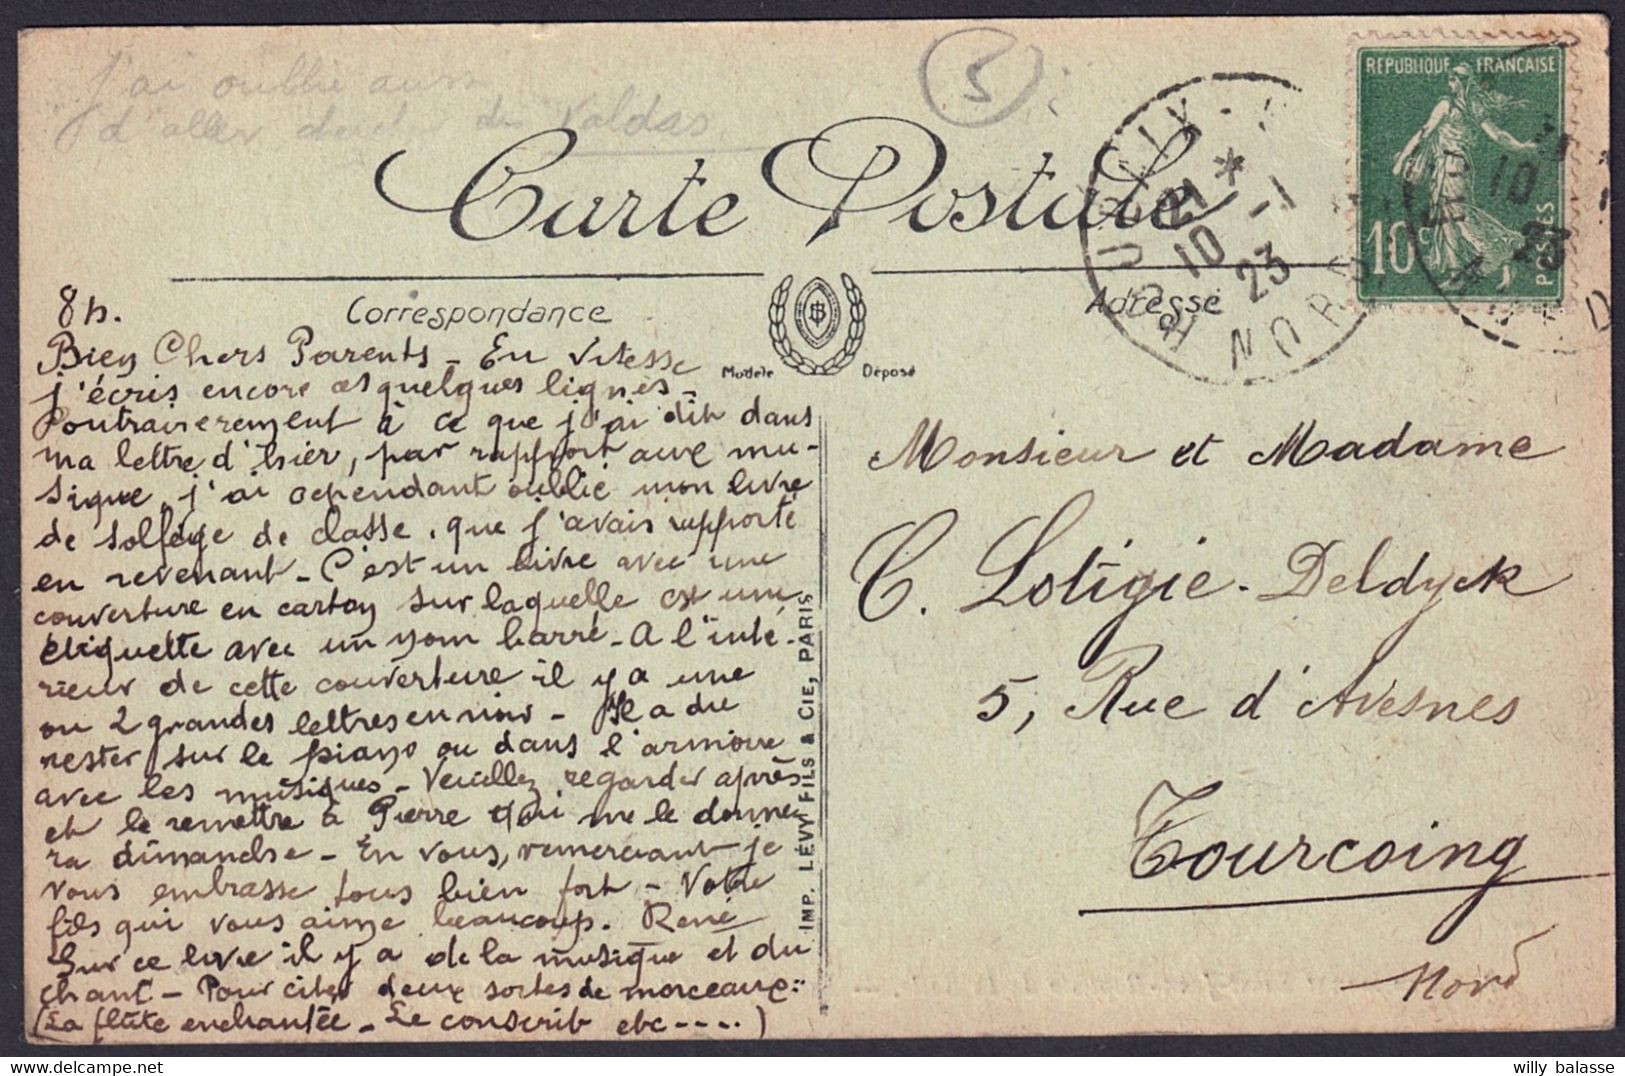 J'ai oublié aussi
d'aller chercher des Valdas
5
Carte Postale
Correspondance
Adresse
Modèle Déposé
REPUBLIQUE FRANÇAISE
10c
POSTES
21 *
10 - 1
23
NORD
10
23
8h.
Bien Chers Parents - En vitesse
j'écris encore ces quelques lignes -
Contrairerement à ce que j'ai dit dans
ma lettre d'hier, par rapport aux mu-
sique, j'ai cependant oublié mon livre
de solfège de classe, que j'avais rapporté
en revenant - C'est un livre avec une
couverture en carton sur laquelle est une
étiquette avec un nom barré - A l'inté-
rieur de cette couverture il y a une
ou 2 grandes lettres en noir - Il a du
rester sur le piano ou dans l'armoire
avec les musiques - Veuillez regarder après
et le remettre à Pierre qui me le donne-
ra dimanche - En vous remerciant je
vous embrasse tous bien fort - Votre
fils qui vous aime beaucoup. René
Sur ce livre il y a de la musique et du
chant - Pour citer deux sortes de morceaux:
(La flûte enchantée - Le conscrit etc ....)
IMP. LÉVY FILS & CIE, PARIS
Monsieur et Madame
C. Lotigie-Deldyck
5, Rue d'Avesnes
Tourcoing
Nord
willy balasse